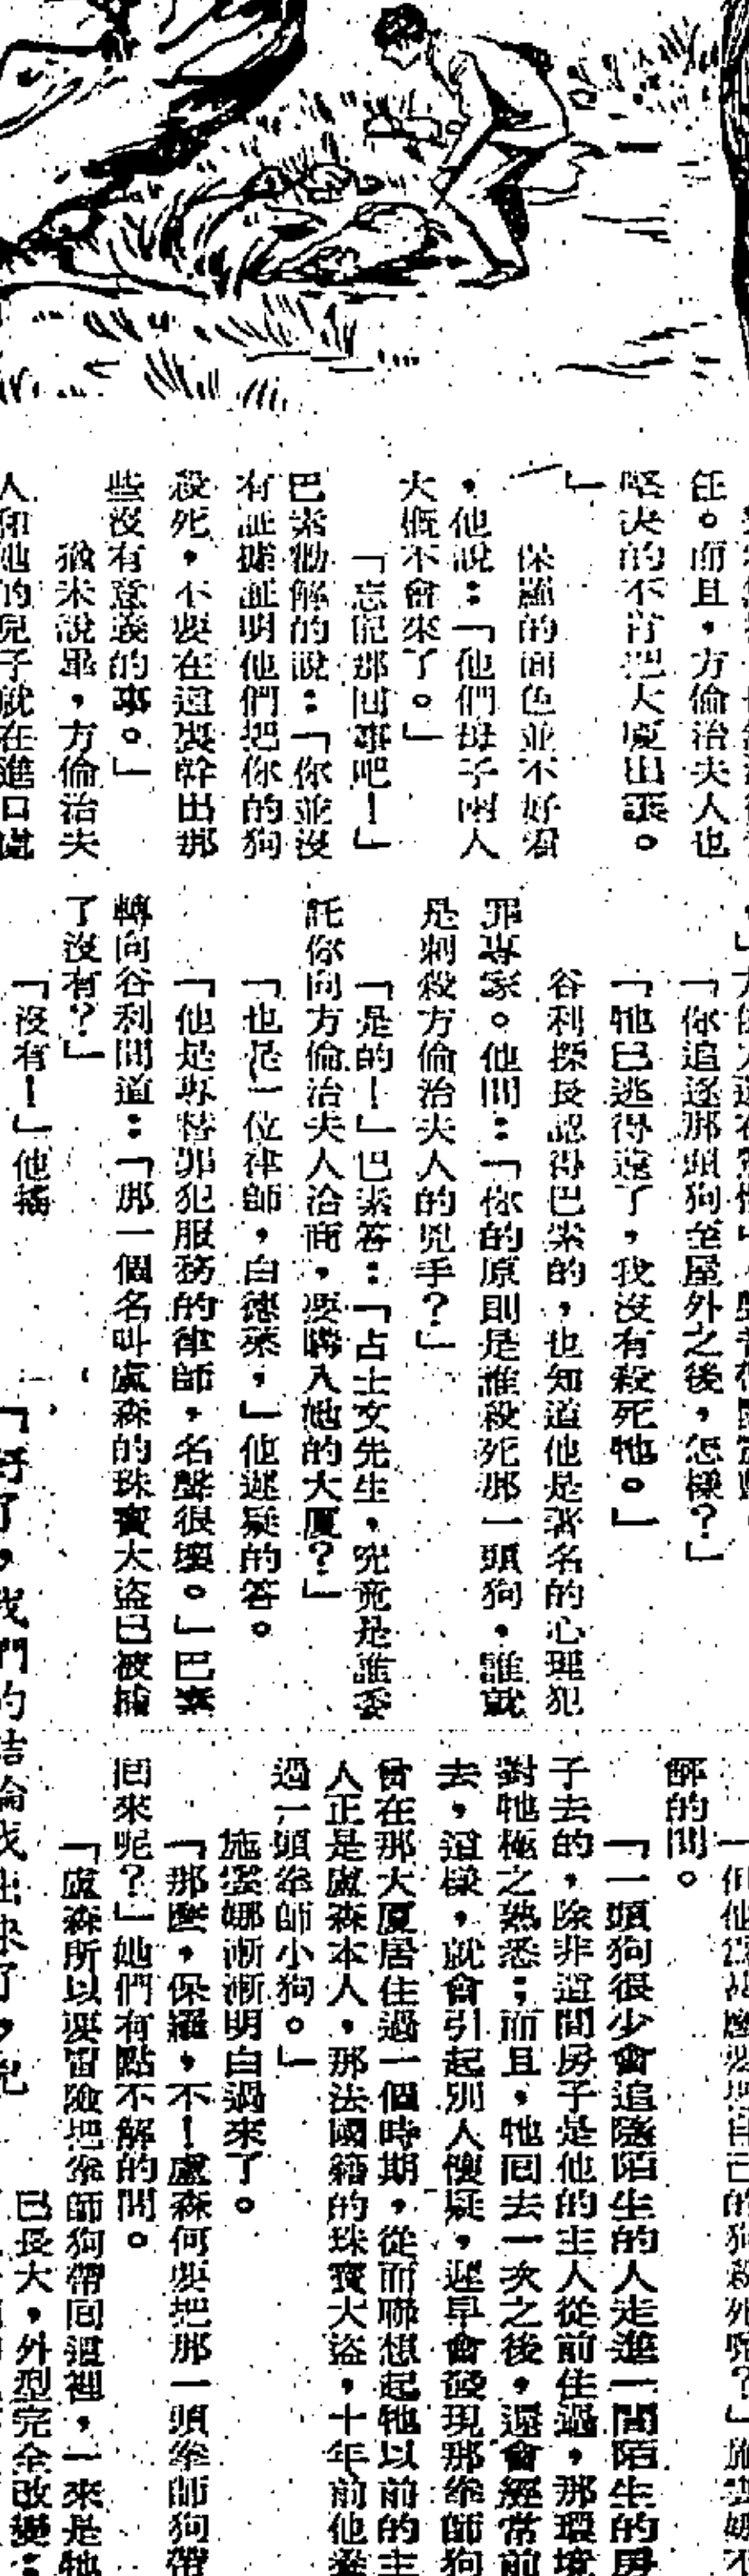 任。而且，方倫治夫人也
堅決的不肯把大廈出讓。
」
保羅的面色並不好看
，他說：「他們母子兩人
大概不會來了。」
「忘記那回事吧！」
巴素勸解的說：「你並沒
有証據証明他們把你的狗
殺死，不要在這裏幹出那
些沒有意義的事。」
猶未說畢，方倫治夫
人和她的兒子就在進口處
「你追逐那頭狗至屋外之後，怎樣？」
「牠已逃得遠了，我沒有殺死牠。」
谷利探長認得巴素的，也知道他是著名的心理犯
罪專家。他問：「你的原則是誰殺死那一頭狗，誰就
是刺殺方倫治夫人的兇手？」
「是的！」巴素答：「占士文先生，究竟是誰委
託你向方倫治夫人洽商，要購入她的大廈？」
「也是一位律師，白德萊，」他遲疑的答。
「他是專替罪犯服務的律師，名聲很壞。」巴素
轉向谷利問道：「那一個名叫盧森的珠寶大盜已被捕
了沒有？」
「沒有！」他搖
「好了，我們的結論找出來了，兇
醉的問。
「一頭狗很少會追隨陌生的人走進一間陌生的房
子去的，除非這間房子是他的主人從前住過，那環境
對牠極之熟悉；而且，牠回去一次之後，還會經常前
去，這樣，就會引起別人懷疑，遲早會發現那拳師狗
曾在那大廈居住過一個時期，從而聯想起牠以前的主
人正是盧森本人，那法國籍的珠寶大盜，十年前他養
過一頭拳師小狗。」
施雲娜漸漸明白過來了。
「那麼，保羅，不！盧森何要把那一頭拳師狗帶
回來呢？」她們有點不解的問。
「盧森所以要冒險把拳師狗帶回這裡，一來是牠
已長大，外型完全改變：